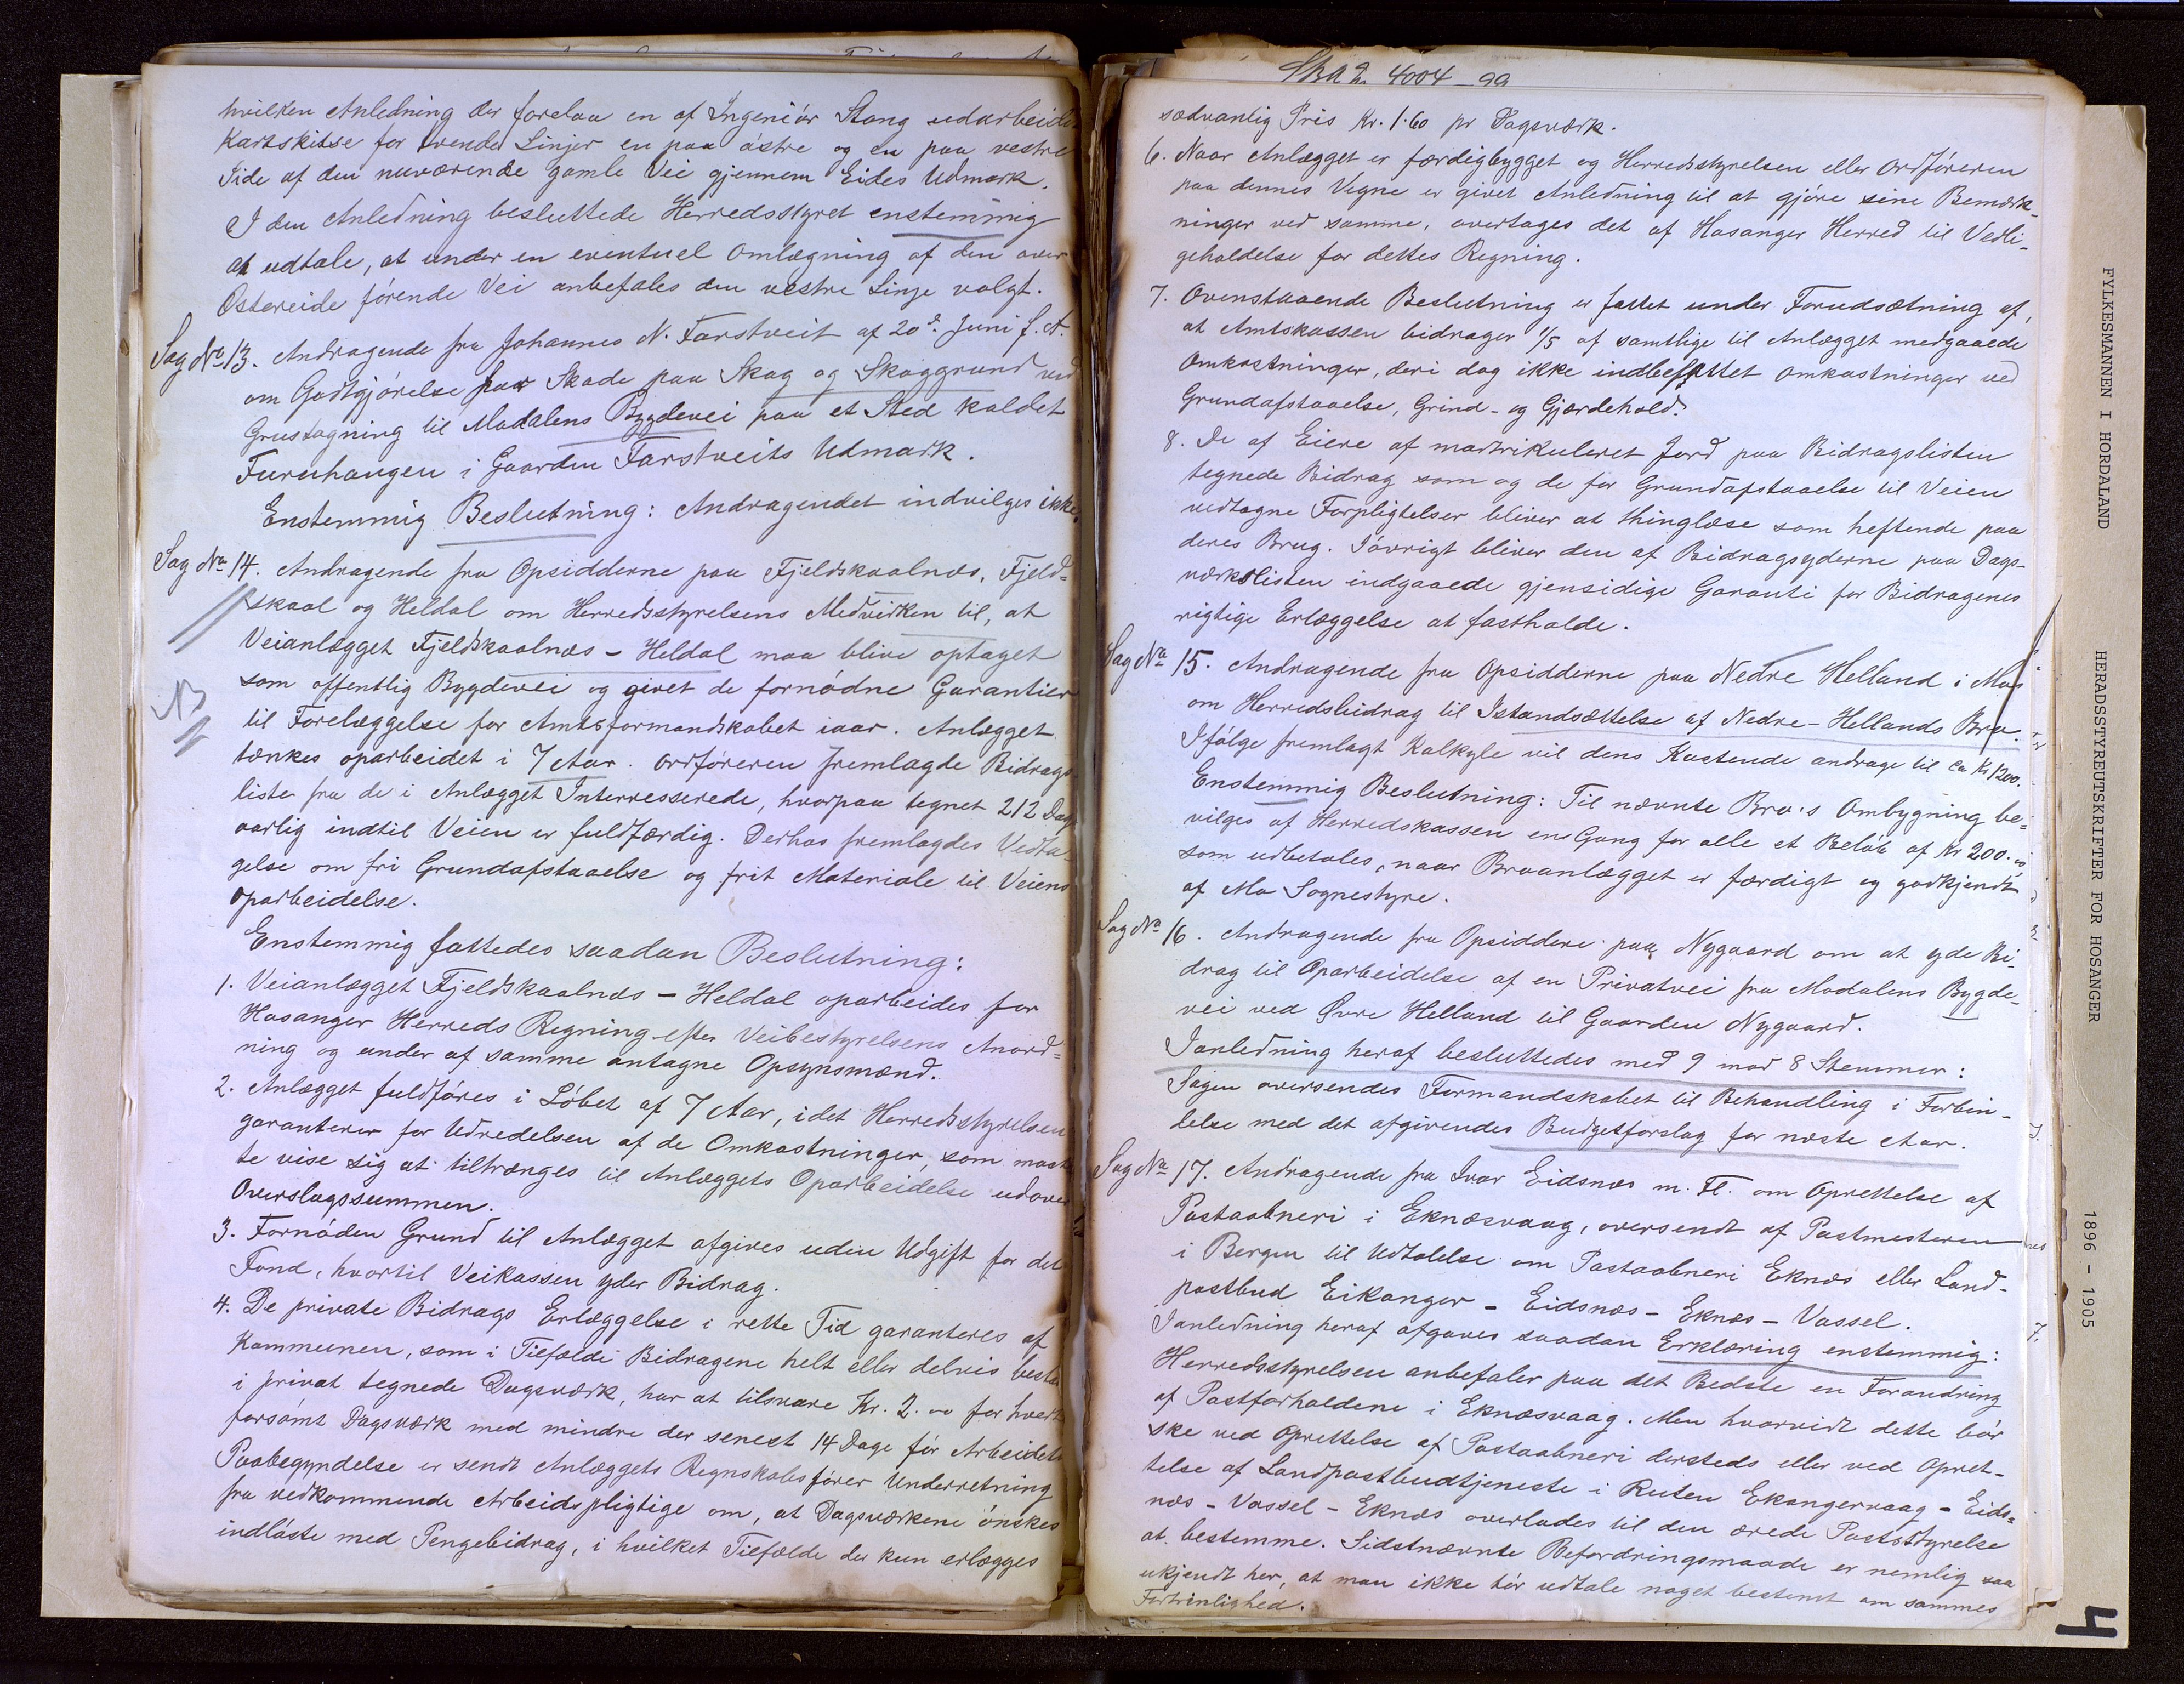 hvilken Anledning der forelaa en af Ingeniør Stang udarbeidet
Kartskitse for tvende Linjer en paa østre og en paa vestre
Side af den nuværende gamle Vei gjennem Eides Udmark.
I den Anledning besluttede Herredsstyret enstemmig
at udtale, at under en eventuel Omlægning af den over
Østereide førende Vei anbefales den vestre Linje valgt.
Sag No 13. Andragende fra Johannes N. Farstveit af 20d. Juni f. A.
om Godtgjørelse for Skade paa Skog og Skoggrund ved
Grustagning til Modalens Bygdevei paa et Sted kaldet
Furuhaugen i Gaarden Farstveits Udmark.
Enstemmig Beslutning: Andragendet indvilges ikke.
Sag No 14. Andragende fra Opsidderne paa Fjeldskaalnæs, Fjeld=
skaal og Heldal om Herredsstyrelsens Medvirken til, at
Veianlægget Fjeldskaalnæs - Heldal maa blive optaget
som offentlig Bygdevei og givet de fornødne Garantier
NB
til Forelæggelse for Amtsformandskabet iaar. Anlægget
tænkes oparbeidet i 7 Aar. Ordføreren fremlagde Bidrags-
liste fra de i Anlægget Interresserede, hvorpaa tegnet 212 Dag
aarlig indtil Veien er fuldfærdig. Derhos fremlagdes Vedta-
gelse om fri Grundafstaaelse og frit Materiale til Veiens
Oparbeidelse.
Enstemmig fattedes saadan Beslutning:
1. Veianlægget Fjeldskaalnæs - Heldal oparbeides for
Hosanger Herreds Regning efter Veibestyrelsens Anord=
ning og under af samme antagne Opsynsmænd.
2. Anlægget fuldføres i Løbet af 7 Aar, idet Herredsstyrelsen
garanterer for Udredelsen af de Omkostninger, som maat
te vise sig at tiltrænges til Anlæggets Oparbeidelse udover
Overslagssummen.
3. Fornøden Grund til Anlægget afgives uden Udgift for det
Fond, hvortil Veikassen yder Bidrag.
4. De private Bidrags Erlæggelse i rette Tid garanteres af
Kommunen, som i Tilfælde Bidragene helt eller delvis bestaar
i privat tegnede Dagsværk, har at tilsvare Kr. 2.00 for hvert
forsømt Dagsværk med mindre der senest 14 Dage før Arbeidets
Paabegyndelse er sendt Anlæggets Regnskabsfører Underretning
fra vedkommende Arbeidspligtige om, at Dagsværkene ønskes
indløste med Pengebidrag, i hvilket Tilfælde der kun erlægges
4004 - 99
sædvanlig Pris Kr. 1.60 pr Dagsværk.
6. Naar Anlægget er færdigbygget og Herredsstyrelsen eller Ordføreren
paa dennes Vegne er givet Anledning til at gjøre sine Bemærk-
ninger ved samme, overtages det af Hosanger Herred til Vedli-
geholdelse for dettes Regning.
7. Ovenstaaende Beslutning er fattet under Forudsætning af,
at Amtskassen bidrager 1/5 af samtlige til Anlægget medgaaede
Omkostninger, deri dog ikke indbefattet Omkostninger ved
Grundafstaaelse, Grind- og Gjærdehold.
8. De af Eiere af martrikuleret Jord paa Bidragslisten
tegnede Bidrag som og de for Grundafstaaelse til Veien
vedtagne Forpligtelser bliver at thinglæse som heftende paa
deres Brug. Iøvrigt bliver den af Bidragsyderne paa Dags-
værkslisten indgaaede gjensidige Garanti for Bidragenes
rigtige Erlæggelse at fastholde.
Sag No 15. Andragende fra Opsidderne paa Nedre Helland i Mo
om Herredsbidrag til Istandsættelse af Nedre-Hellands Bro.
Ifølge fremlagt Kalkyle vil dens Kostende andrage til ca Kr 1200.
Enstemmig Beslutning: Til nævnte Bro's Ombygning be=
vilges af Herredskassen en Gang for alle et Beløb af Kr 200.00
som udbetales, naar Broanlægget er færdigt og godkjendt
af Mo Sognestyre.
Sag No 16. Andragende fra Opsiddere paa Nygaard om at yde Bi-
drag til Oparbeidelse af en Privatvei fra Modalens Bygde-
vei ved Øvre Helland til Gaarden Nygaard.
Ianledning heraf besluttedes med 9 mod 8 Stemmer:
Sagen oversendes Formandskabet til Behandling i Forbin-
delse med det afgivendes Budgetforslag for næste Aar.
Sag No 17. Andragende fra Ivar Eidsnæs m. Fl. om Oprettelse af
Postaabneri i Eknæsvaag, oversendt af Postmesteren
i Bergen til Udtalelse om Postaabneri Eknæs eller Land-
postbud Eikanger - Eidsnæs - Eknæs - Vassel.
Ianledning heraf afgaves saadan Erklæring enstemmig:
Herredsstyrelsen anbefaler paa det Bedste en Forandring
af Postforholdene i Eknæsvaag. Men hvorvidt dette bør
ske ved Oprettelse af Postaabneri dersteds eller ved Opret-
telse af Landpostbudtjeneste i Ruten Ekangervaag - Eids=
næs - Vassel - Eknæs overlades til den ærede Poststyrelse
at bestemme. Sidstnævnte Befordringsmaade er nemlig saa
ukjendt her, at man ikke tør udtale noget bestemt om sammes
Fortrinlighed.
FYLKESMANNEN I HORDALAND HERADSSTYREUTSKRIFTER FOR HOSANGER 1896 - 1905
4